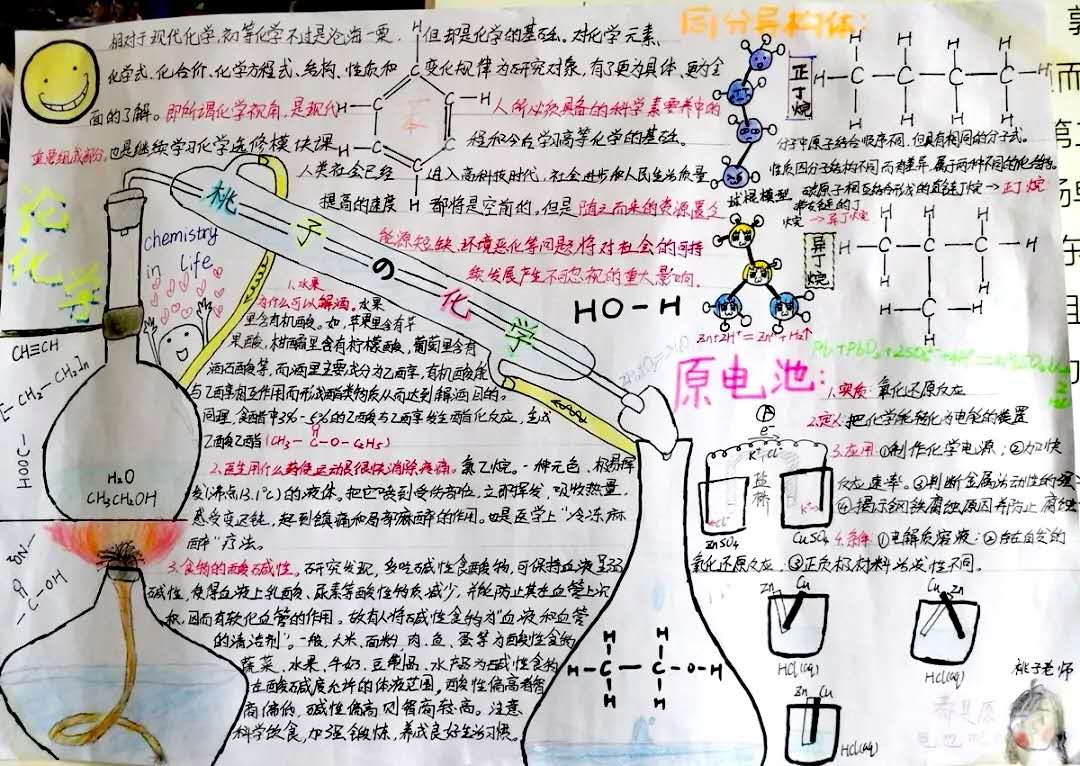 相对于现代化学,初等化学不过是沧海一粟,但却是化学的基础。对化学元素、
化学式、化合价、化学方程式、结构、性质和变化规律为研究对象,有了更为具体、更为全
面的了解。即所谓化学视角,是现代人所必须具备的科学素要养中的
重要组成部分,也是继续学习化学选修模块课程和今后学习高等化学的基础。
人类社会已经进入高科技时代,社会进步和人民生活质量
提高的速度都将是空前的,但是随之而来的资源匮乏
能源短缺、环境恶化等问题将对社会的可持
续发展产生不可忽视的重大影响。
苯
论
化学
桃子の化学
chemistry
in life
1.水果
为什么可以解酒。水果
里含有机酸。如,苹果里含有苹
果酸,柑橘里含有柠檬酸,葡萄里含有
酒石酸等,而酒里主要成分为乙醇,有机酸能
与乙醇相互作用而形成酯类物质从而达到解酒目的。
同理,食醋中3%-5%的乙酸与乙醇发生酯化反应,生成
乙酸乙酯(CH₃-C-O-C₂H₅)
2.医生用什么药使运动员很快消除疼痛。氯乙烷。一种无色、极易挥
发(沸点13.1℃)的液体。把它喷到受伤部位,立即挥发,吸收热量,
感受变迟钝,起到镇痛和局部麻醉的作用。也是医学上"冷冻麻
醉"疗法。
3.食物的酸碱性。研究发现,多吃碱性食酸物,可保持血液呈弱
碱性,使得血液上乳酸、尿素等酸性物质减少,并能防止其在血管上沉
积,因而有软化血管的作用。故有人将碱性食物为"血液和血管
的清洁剂"。一般,大米、面粉、肉、鱼、蛋等为酸性食物
蔬菜、水果、牛奶、豆制品、水产品为碱性食物
在酸碱度允许的体液范围,酸性偏高者智
商偏低,碱性偏高则智商较高。注意
科学饮食,加强锻炼,养成良好生活习惯。
CH≡CH
HOOC-
-C-OH
H₂O
CH₃CH₂OH
HO-H
同分异构体:
正丁烷
分子中原子结合顺序不同,但具有相同的分子式。
性质因分子结构不同而有差异,属于两种不同的化合物。
球棍模型
碳原子相互结合形成的直链丁烷→正丁烷
带支链的丁
烷→异丁烷
异丁烷
Zn+2H⁺=Zn²⁺+H₂↑
原电池:
1.实质:氧化还原反应
2.定义:把化学能转化为电能的装置
3.应用:①制作化学电源;②加快
反应速率。③判断金属活动性的强
④揭示钢铁腐蚀原因并防止腐蚀
4.条件:①电解质溶液;②自发的
氧化还原反应;③正负极材料活泼性不同。
A
e⁻
K⁺Cl⁻
盐桥
Cl⁻
K⁺
ZnSO₄
CuSO₄
Zn Cu
HCl(aq)
Cu Zn
HCl(aq)
Zn Cu
HCl(aq)
桃子老师